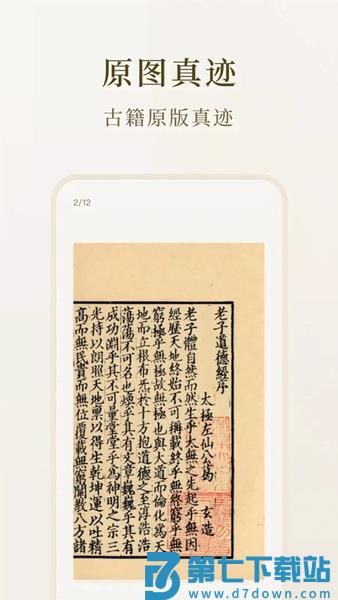 原图真迹
古籍原版真迹
2/12
老子道德經序
太極左仙公葛 玄造
老子體自然而然生乎太無之先起乎無因
經歷天地終始不可稱載終乎無終窮乎無
窮極乎無極故無極也與大道而淪化為天
地而立根布炁於十方抱道德之至淳浩浩
蕩蕩不可名也煥乎其有文章巍巍乎其有
成功淵乎其不可量堂堂乎為神明之宗三
光持以朗照天地稟以得生乾坤運以吐精
高而無民貴而無位覆載無窮闡教八方諸
第七下载站
www.d7down.com